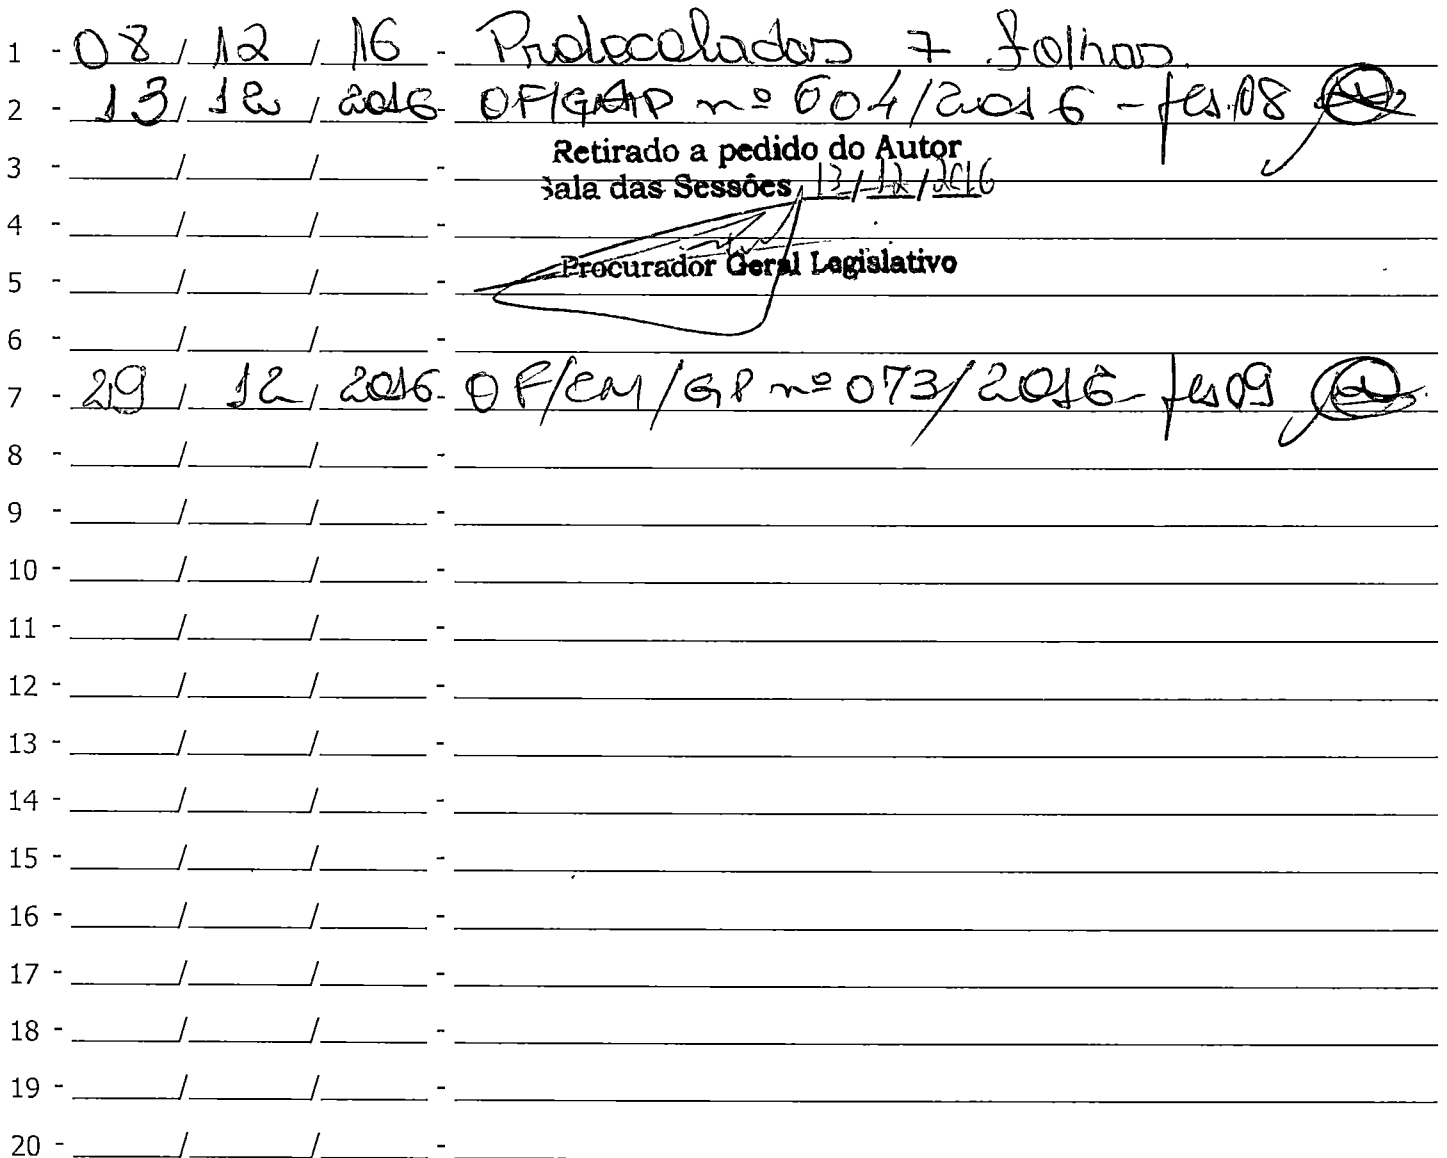 1 - 08 / 12 / 16 - Protocolados 7 folhas.
2 - 13 / 12 / 2016 - OF/GAP nº 604/2016 - fls. 08
Retirado a pedido do Autor
3 - ___/___/___ -
Sala das Sessões 13/12/2016
4 - ___/___/___ -
Procurador Geral Legislativo
5 - ___/___/___ -
6 - ___/___/___ -
7 - 29 / 12 / 2016 - OF/CM/GP nº 073/2016 - fls 09
8 - ___/___/___ -
9 - ___/___/___ -
10 - ___/___/___ -
11 - ___/___/___ -
12 - ___/___/___ -
13 - ___/___/___ -
14 - ___/___/___ -
15 - ___/___/___ -
16 - ___/___/___ -
17 - ___/___/___ -
18 - ___/___/___ -
19 - ___/___/___ -
20 - ___/___/___ -